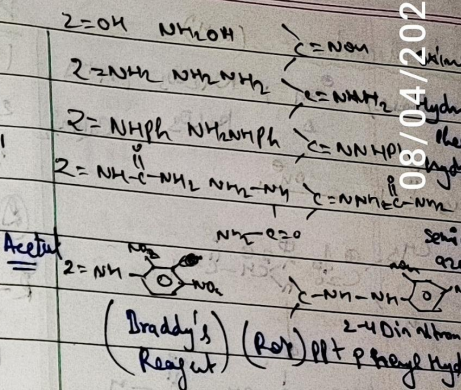 Z=OH NH2OH C=NOH Oxim
Z=NH2 NH2NH2 C=NNH2 Hydr
Z=NHPh NH2NHPh C=NNHPh Phe
Hyd
O
Z=NH-C-NH2 NH2-NH C=NNH-C-NH2
NH2-C=O Semi
Acetul
NO2
Z=NH- -NO2 C-NH-NH-
(Braddy's Reagent) ppt
2-4 Dinitro
phenyl Hyd
08/04/202